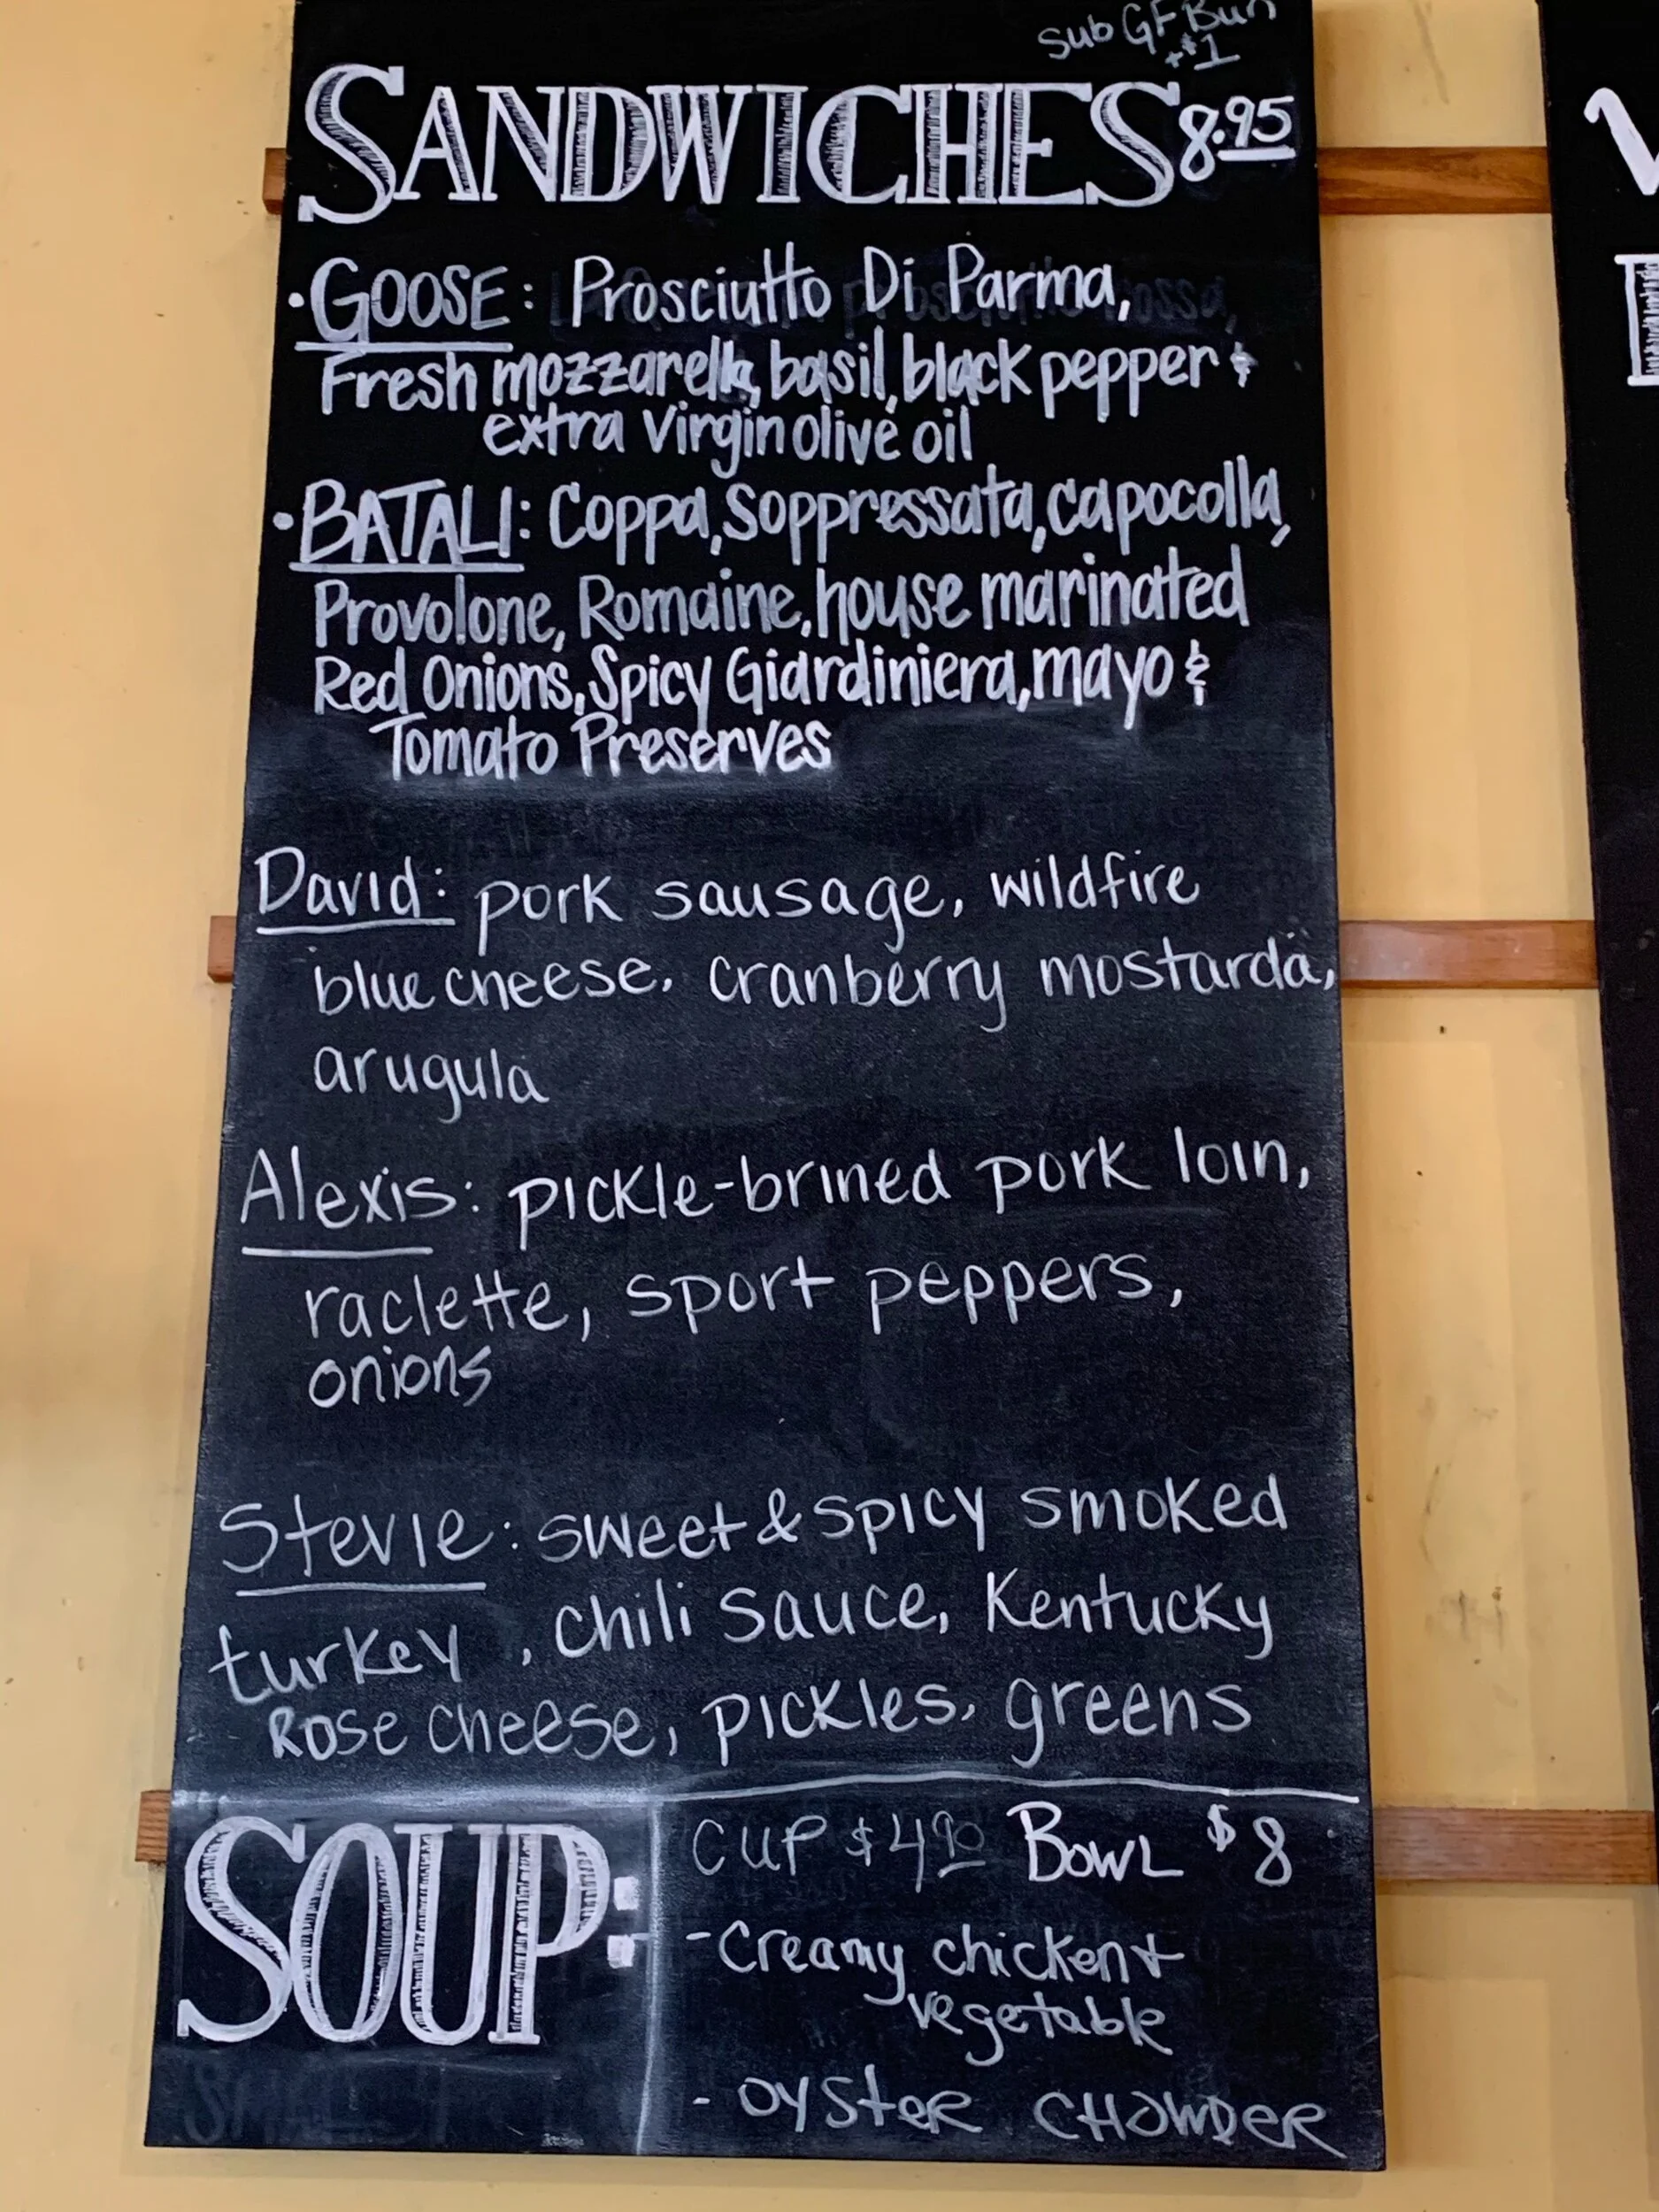 Sub GF Bun
+$1
SANDWICHES 8.95
·GOOSE: Prosciutto Di Parma,
Fresh mozzarella, basil, black pepper &
extra virgin olive oil
·BATALI: Coppa, Soppressata, capocolla,
Provolone, Romaine, house marinated
Red Onions, Spicy Giardiniera, mayo &
Tomato Preserves
David: pork sausage, wildfire
blue cheese, cranberry mostarda,
arugula
Alexis: pickle-brined pork loin,
raclette, sport peppers,
onions
Stevie: sweet & spicy smoked
turkey, chili sauce, Kentucky
Rose cheese, pickles, greens
SOUP:
CUP $4.90 BOWL $8
- Creamy chicken +
vegetable
- OYSTER CHOWDER